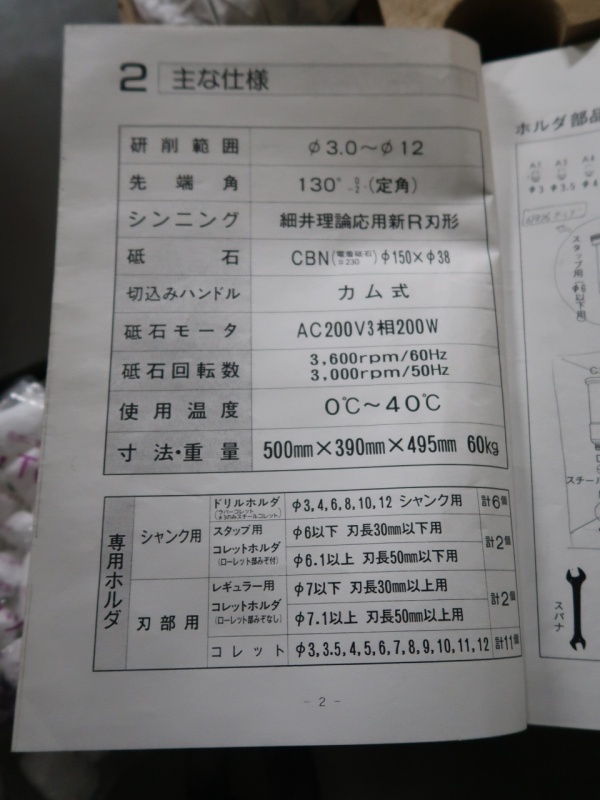 2 主な仕様
研削範囲 φ3.0～φ12
先端角 130° 0 -2° (定角)
シンニング 細井理論応用新R刃形
砥石 CBN(電着砥石 #230)φ150×φ38
切込みハンドル カム式
砥石モータ AC200V3相200W
砥石回転数 3,600rpm/60Hz
3,000rpm/50Hz
使用温度 0℃～40℃
寸法・重量 500mm×390mm×495mm 60kg
専用ホルダ
シャンク用
ドリルホルダ φ3,4,6,8,10,12 シャンク用 計6個
スタッブ用
コレットホルダ
(ローレット部みぞ付)
φ6以下 刃長30mm以下用
φ6.1以上 刃長50mm以下用
計2個
刃部用
レギュラー用
コレットホルダ
(ローレット部みぞなし)
φ7以下 刃長30mm以上用
φ7.1以上 刃長50mm以上用
計2個
コレット φ3,3.5,4,5,6,7,8,9,10,11,12 計11個
- 2 -
ホルダ部品
A1 A3 A4
φ3 φ3.5 φ4
スタッブ用
φ6以下用
スパナ